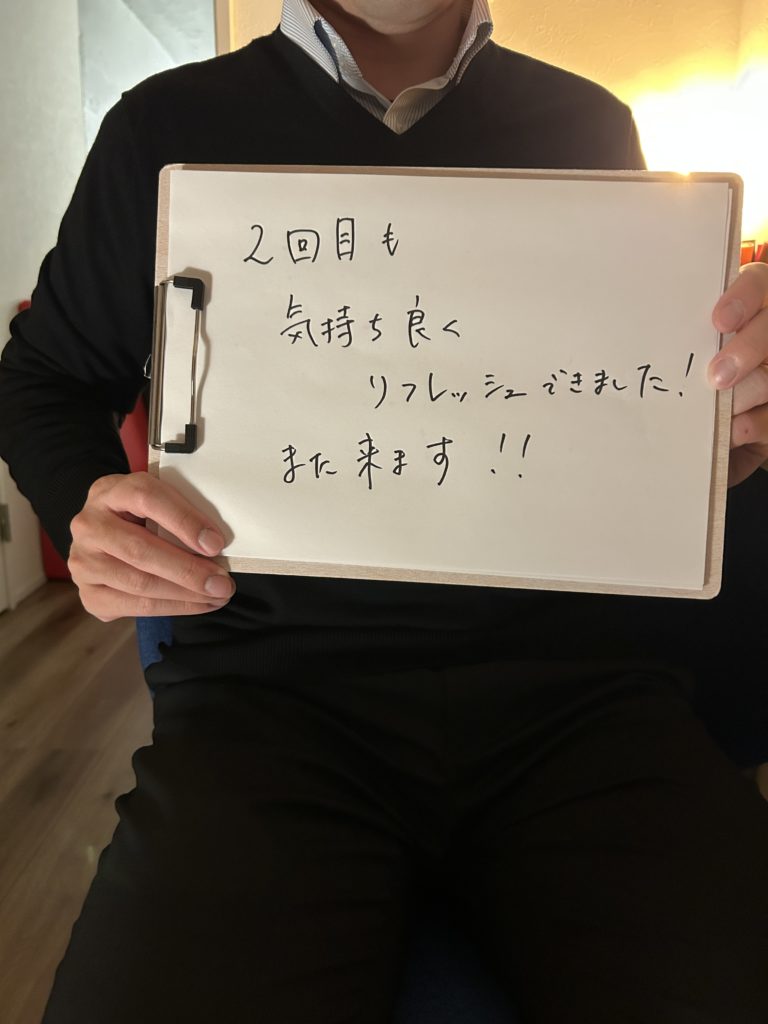 2回目も
気持ち良く
リフレッシュできました!
また来ます!!